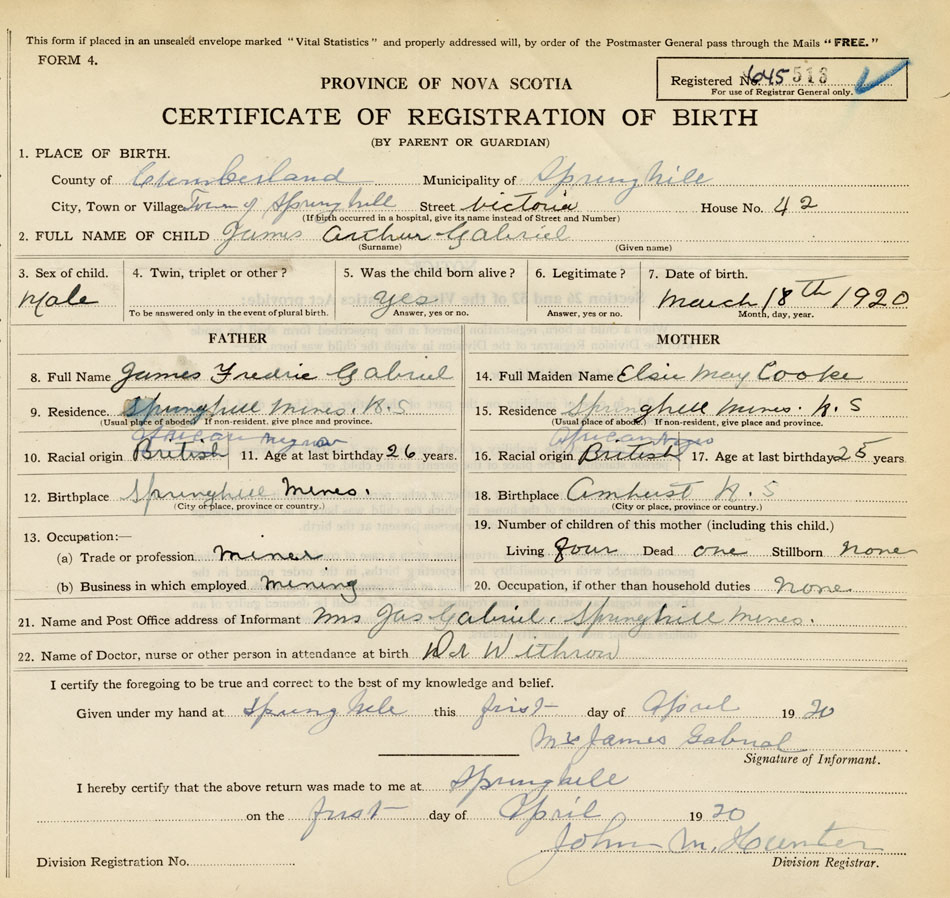 This form if placed in an unsealed envelope marked "Vital Statistics" and properly addressed will, by order of the Postmaster General pass through the Mails "FREE."
FORM 4.
Registered No. 645 513
For use of Registrar General only.
PROVINCE OF NOVA SCOTIA
CERTIFICATE OF REGISTRATION OF BIRTH
(BY PARENT OR GUARDIAN)
1. PLACE OF BIRTH.
County of Cumberland Municipality of Springhill
City, Town or Village Town of Springhill Street Victoria House No. 42
(If birth occurred in a hospital, give its name instead of Street and Number)
2. FULL NAME OF CHILD James Arthur Gabriel
(Surname) (Given name)
3. Sex of child. 4. Twin, triplet or other? 5. Was the child born alive? 6. Legitimate? 7. Date of birth.
Male yes March 18th 1920
To be answered only in the event of plural birth. Answer, yes or no. Answer, yes or no. Month, day, year.
FATHER MOTHER
8. Full Name James Fredric Gabriel 14. Full Maiden Name Elsie May Cooke
9. Residence. Springhill Mines. N.S 15. Residence Springhill Mines. N.S
(Usual place of abode) If non-resident, give place and province. (Usual place of abode.) If non-resident, give place and province.
African Negro African Negro
10. Racial origin British 11. Age at last birthday 26 years. 16. Racial origin British 17. Age at last birthday 25 years
12. Birthplace Springhill Mines. 18. Birthplace Amherst N.S
(City or place, province or country.) (City or place, province or country.)
13. Occupation:— 19. Number of children of this mother (including this child.)
(a) Trade or profession miner Living four Dead one Stillborn none
(b) Business in which employed mining 20. Occupation, if other than household duties none
21. Name and Post Office address of Informant Mrs Jas Gabriel. Springhill Mines.
22. Name of Doctor, nurse or other person in attendance at birth Dr Withrow
I certify the foregoing to be true and correct to the best of my knowledge and belief.
Given under my hand at Springhill this first day of April 19 20
James Gabriel
Signature of Informant.
I hereby certify that the above return was made to me at Springhill
on the first day of April 19 20
John M. Hunter
Division Registration No. Division Registrar.